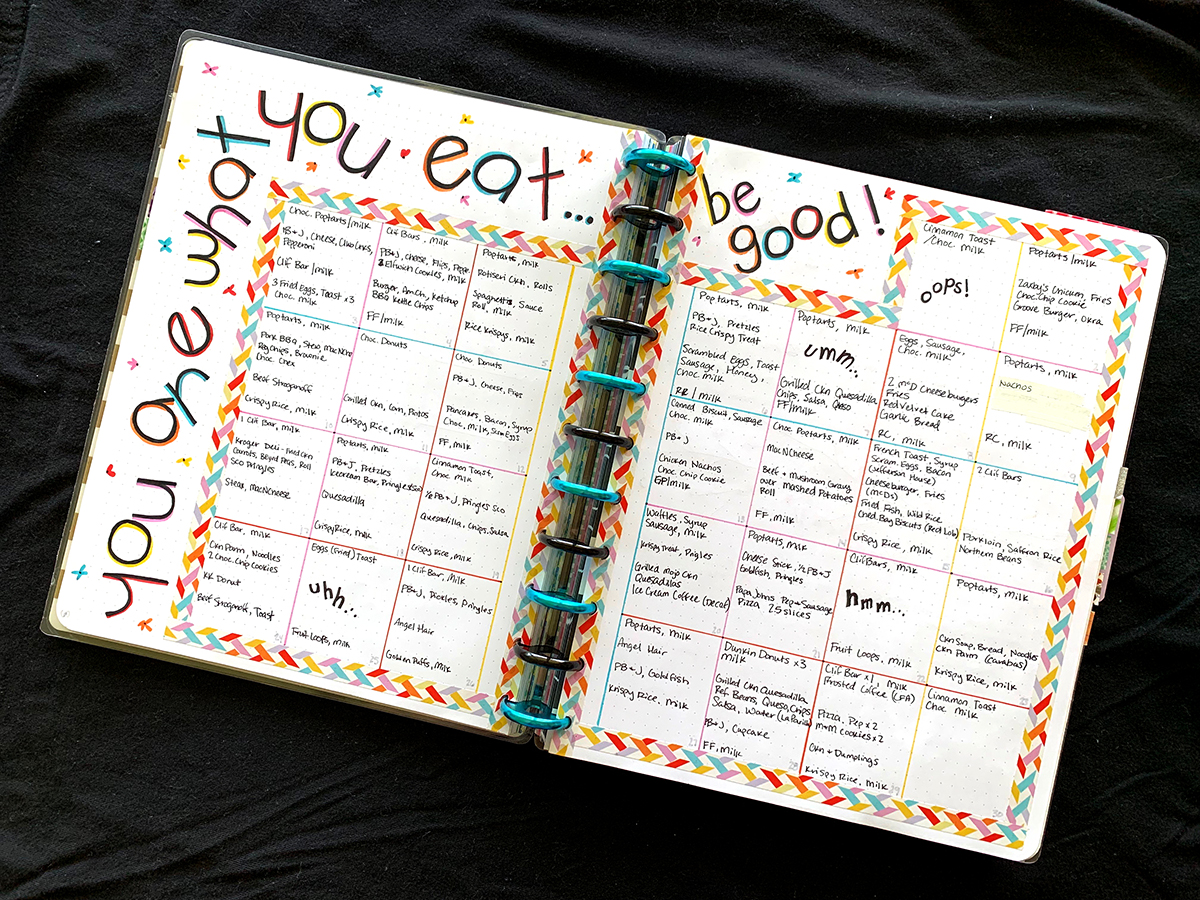 you are what
you eat...
Choc. Poptarts/milk
PB+J, Cheese,
Pepperoni
Clif Bar/milk
3 Fried Eggs, Toast x3
Choc. milk
3
Clif Bars, milk
PB+J, Cheese, Flips, Pepp.
2 Elfwich Cookies, milk
Burger, Am.Ch, Ketchup
BBQ Kettle Chips
FF/milk
4
Poptarts, milk
Rotiseri Ckn. Rolls
Spaghetti, Sauce
Roll, milk
Rice Krispys, milk
5
Poptarts, milk
Pork BBQ, Stew, MacNChz
Chips, Brownie
Choc. Chex
Beef Stroganoff
Crispy Rice, milk
10
Choc. Donuts
Grilled Ckn, Corn, Potos
Crispy Rice, milk
11
Choc Donuts
PB+J, Cheese, Frios
Pancakes, Bacon, Syrup
Choc. milk, Scrm Eggs
FF, milk
12
1 Clif Bar, milk
Kroger Deli - Fried Ckn
Carrots, Blkyd Peas, Roll
Sco Pringles
Steak, MacNCheese
17
Poptarts, milk
PB+J, Pretzles
Icecream Bar, Pringles Sco
Quesadilla
Crispy Rice, milk
18
Cinnamon Toast,
Choc milk
½ PB+J, Pringles Sco
Quesadilla, Chips, Salsa
Crispy Rice, milk
19
Clif Bar, milk
Ckn Parm, Noodles
2 Choc. Chip Cookies
KK Donut
Beef Stroganoff, Toast
24
Eggs (Fried) Toast
uhh...
Fruit Loops, milk
25
1 Clif Bar, milk
PB+J, Pickles, Pringles
Angel Hair
Golden Puffs, milk
26
be
good!
Cinnamon Toast
/Choc. milk
oops!
Poptarts/milk
Zaxby's Chicken, Fries
Choc. Chip Cookie
Groove Burger, Okra
FF/milk
Poptarts, milk
PB+J, Pretzles
Rice Crispy Treat
Scrambled Eggs, Toast
Sausage, Honey,
Choc. milk
RC / milk
6
Poptarts, milk
umm..
Grilled Ckn Quesadilla
Chips, Salsa, Queso
FF/milk
7
Eggs, Sausage,
Choc. milk
2 mcD Cheeseburgers
Fries
Red Velvet Cake
Garlic Bread
RC, milk
8
Poptarts, milk
Nachos
RC, milk
9
Canned Biscuit, Sausage
Choc. milk
PB+J
Chicken Nachos
Choc. Chip Cookie
GP/milk
13
Choc Poptarts, milk
MacNCheese
Beef + Mushroom Gravy
over Mashed Potatoes
Roll
FF, milk
14
French Toast, Syrup
Scram. Eggs, Bacon
(Jefferson House)
Cheeseburger, Fries
(mcDs)
Fried Fish, Wild Rice
Ched. Bay Biscuits (Red Lob)
Crispy Rice, milk
15
2 Clif Bars
Porkloin, Safron Rice
Northern Beans
16
Waffles, Syrup
Sausage, milk
Krispy Treat, Pringles
Grilled Mojo Ckn
Quesadillas
Ice Cream Coffee (Decaf)
20
Poptarts, milk
Cheese Stick, ½ PB+J
Goldfish, Pringles
Papa Johns Pep+Sausage
Pizza 2.5 slices
21
Clif Bars, milk
hmm...
Fruit Loops, milk
22
Poptarts, milk
Ckn Soup, Bread, Noodles
Ckn Parm (Carabas)
Krispy Rice, milk
23
Poptarts, milk
Angel Hair
PB+J, Goldfish
Krispy Rice, milk
27
Dunkin Donuts x3
milk
Grilled Ckn Quesadilla
Ref. Beans, Queso, Chips
Salsa, Water (La Parilla)
PB+J, Cupcake
FF, milk
28
Clif Bar x1, milk
Frosted Coffee (CFA)
Pizza, Pep x 2
m+m cookies x 2
Ckn + Dumplings
Krispy Rice, milk
29
Cinnamon Toast
Choc milk
30